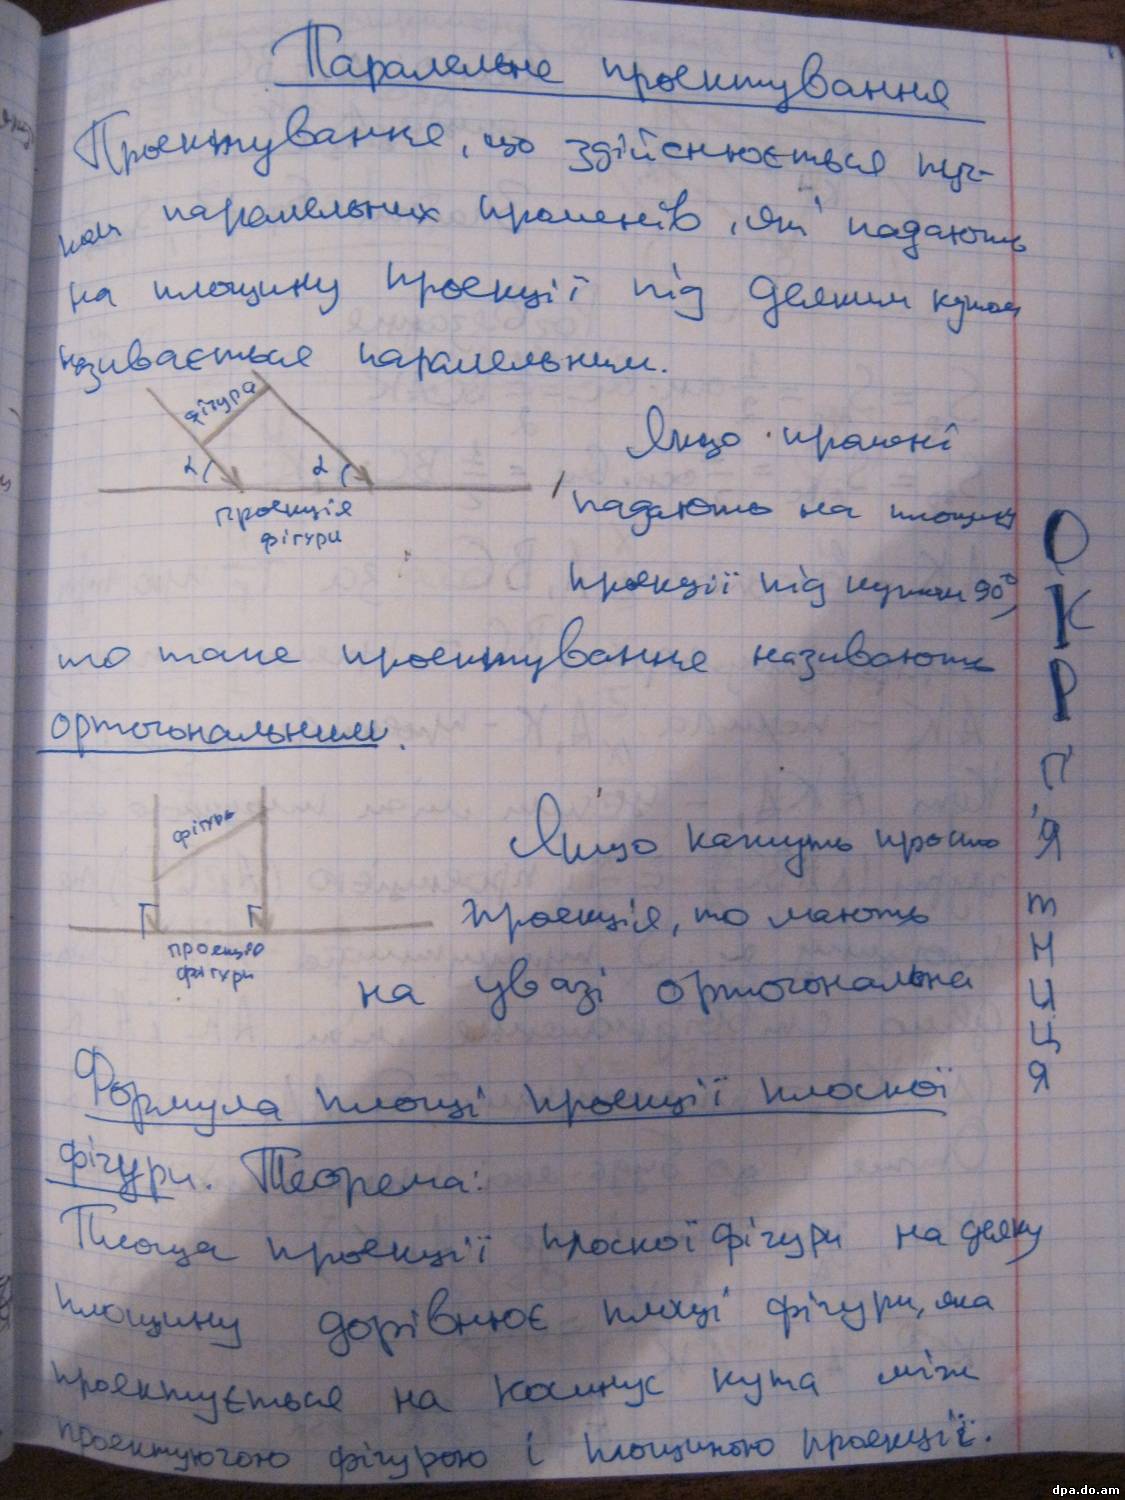 Паралельне проектування
Проектування, що здійснюється пуч-
ком паралельних променів, які падають
на площину проекції під деяким кутом
називається паралельним.
фігура
α
α
проекція
фігури
Якщо промені
падають на площину
проекції під кутом 90°,
то таке проектування називають
ортогональним.
фігура
проекція
фігури
Якщо кажуть просто
проекція, то мають
на увазі ортогональна
Формула площі проекції плоскої
фігури. Теорема:
Площа проекції плоскої фігури на деяку
площину дорівнює площі фігури, яка
проектується на косинус кута між
проектуючою фігурою і площиною проекції.
ОКР
П'ятниця
dpa.do.am